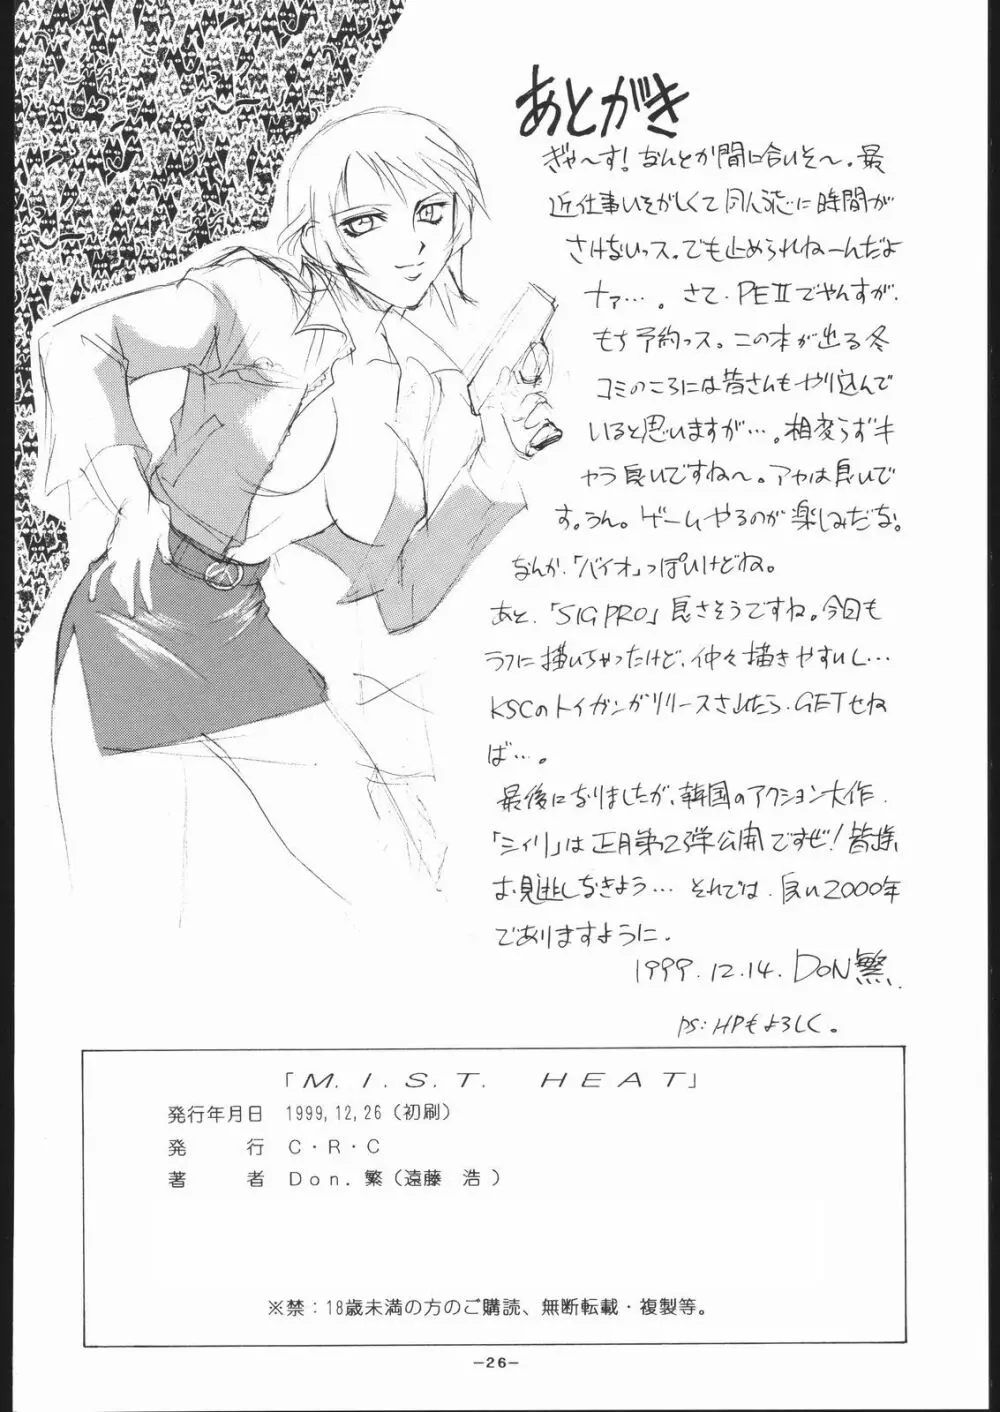 あとがき
ぎゃ〜す！なんとか間に合いそ〜。最
近仕事いそがしくて同人誌に時間が
さけないっス。でも止められねーんだよ
ナァ…。さて、PEⅡでやんすが、
もち予約っス。この本が出る冬
コミのころには皆さんもやり込んで
いると思いますが…。相変らずキ
ャラ良いですね〜。アヤは良いで
す。うん。ゲームやるのが楽しみだな。
なんか、「バイオ」っぽいけどね。
あと、「SIG PRO」良さそうですね。今回も
ラフに描いちゃったけど、仲々描きやすいし…
KSCのトイガンがリリースされたら、GETせね
ば…。
最後になりましたが、韓国のアクション大作、
「シィリ」は正月第2弾公開ですぜ！皆様
お見逃しなきよう… それでは、良い2000年
でありますように。
1999.12.14. DON繁.
PS:HPもよろしく。
「M.I.S.T. HEAT」
発行年月日 1999,12,26（初刷）
発 行 C・R・C
著 者 Don. 繁（遠藤 浩）
※禁：18歳未満の方のご購読、無断転載・複製等。
-26-